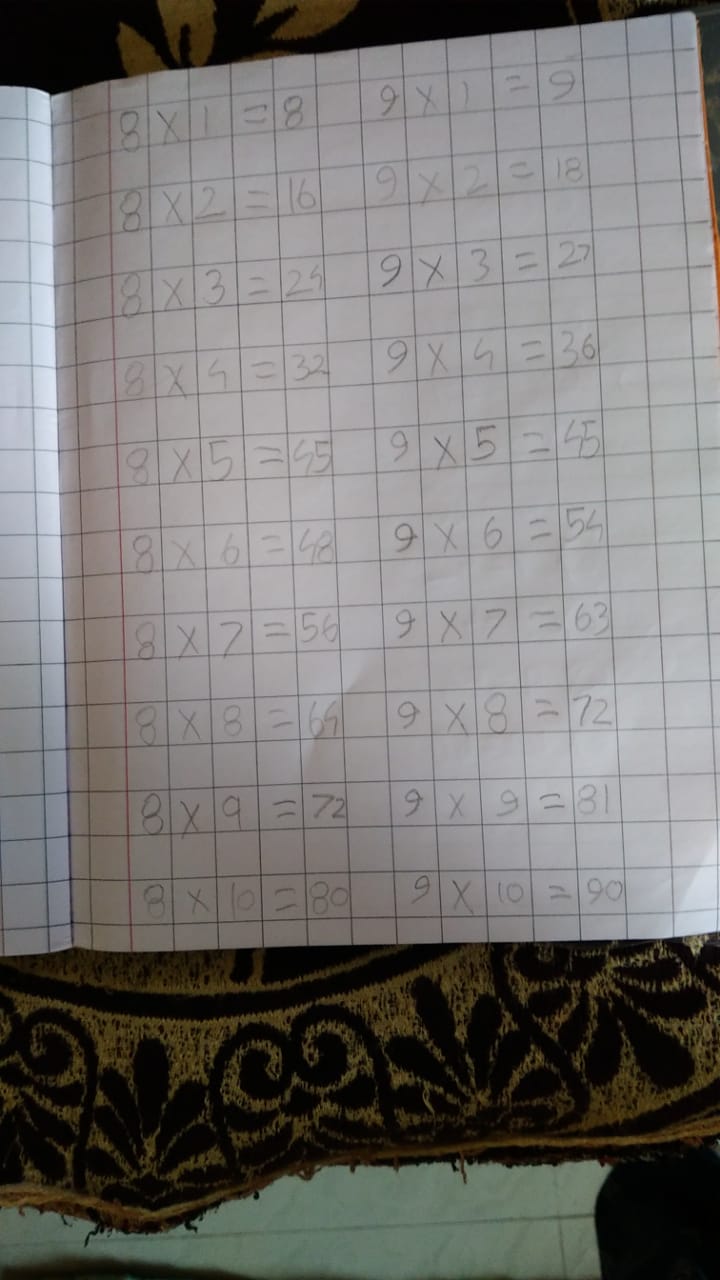 8 × 1 = 8 9 × 1 = 9
8 × 2 = 16 9 × 2 = 18
8 × 3 = 24 9 × 3 = 27
8 × 4 = 32 9 × 4 = 36
8 × 5 = 45 9 × 5 = 45
8 × 6 = 48 9 × 6 = 54
8 × 7 = 56 9 × 7 = 63
8 × 8 = 64 9 × 8 = 72
8 × 9 = 72 9 × 9 = 81
8 × 10 = 80 9 × 10 = 90